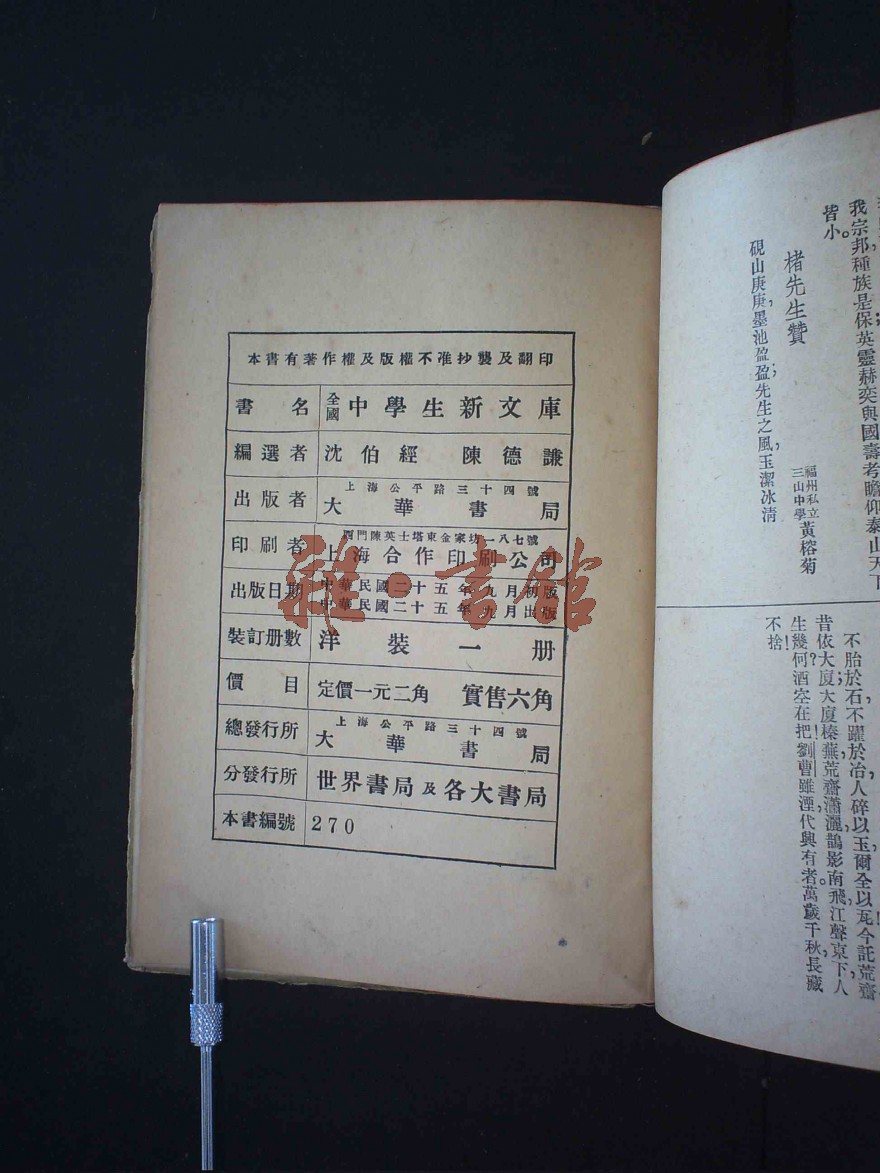 本書有著作權及版權不准抄襲及翻印
書名 全國中學生新文庫
編選者 沈伯經 陳德謙
出版者 上海公平路三十四號
大華書局
印刷者 西門陳英士塔東金家坊一八七號
上海合作印刷公司
出版日期 中華民國二十五年九月初版
中華民國二十五年九月出版
裝訂册數 洋裝一册
價目 定價一元二角 實售六角
總發行所 上海公平路三十四號
大華書局
分發行所 世界書局及各大書局
本書編號 270
雜·書館
我宗邦種族是保英靈赫奕與國壽考瞻仰泰山天下
皆小。
楮先生贊
福州私立三山中學 黃榕菊
硯山庚庚，墨池盈盈先生之風，玉潔冰清
不胎於石，不躍於冶，人碎以玉，爾全以瓦今託荒齋
昔依大廈大廈榛蕪荒齋瀟灑，鵲影南飛，江聲東下，人
生幾何酒空在把劉曹雖湮代興有者。萬歲千秋長藏
不捨！